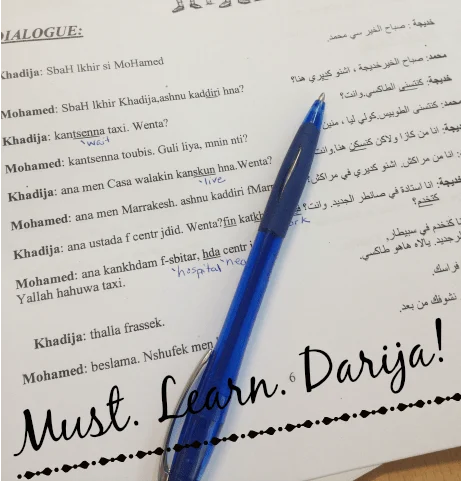 DIALOGUE:
Khadija: SbaH lkhir si MoHamed
Mohamed: SbaH lkhir Khadija,ashnu kaddiri hna?
Khadija: kantsenna taxi. Wenta?
wait
Mohamed: kantsenna toubis. Guli liya, mnin nti?
Khadija: ana men Casa walakin kanskun hna.Wenta?
live
Mohamed: ana men Marrakesh. ashnu kaddiri
Khadija: ana ustada f centr jdid. Wenta?fin
Mohamed: ana kankhdam f-sbitar, hda centr
hospital
Yallah hahuwa taxi.
Khadija: thalla frassek.
Mohamed: beslama. Nshufek men
خديجة : صباح الخير سي محمد.
محمد: صباح الخير خديجة ، اشنو كديري هنا؟
خديجة: كنتسنى الطاكسي. وانت؟
محمد: كنتسنى الطوبيس. كولي ليا ، منين
انا من كازا ولاكن كنسكن هنا. وانت
انا من مراكش. اشنو كديري في مراكش؟
انا استادة في صانطر الجديد. وانت؟
كتخدم؟
كنخدم في سبيطار
جديد. يالاه هاهو طاكسي.
فراسك.
نشوفك من بعد.
6
Must. Learn. Darija!